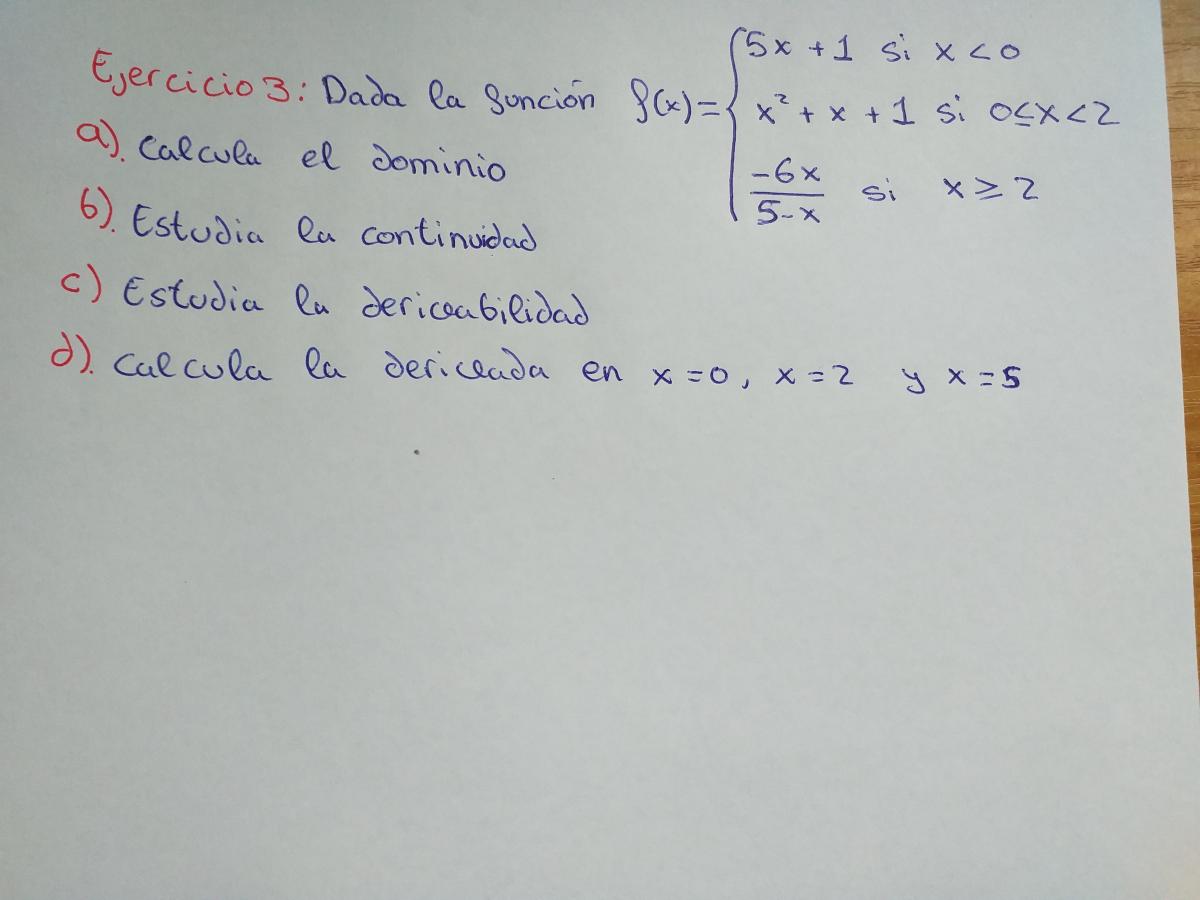 Ejercicio 3: Dada la función f(x) = { 5x + 1 si x < 0
x² + x + 1 si 0 ≤ x < 2
-6x / 5-x si x ≥ 2
a). Calcula el dominio
b). Estudia la continuidad
c) Estudia la derivabilidad
d). Calcula la derivada en x = 0, x = 2 y x = 5